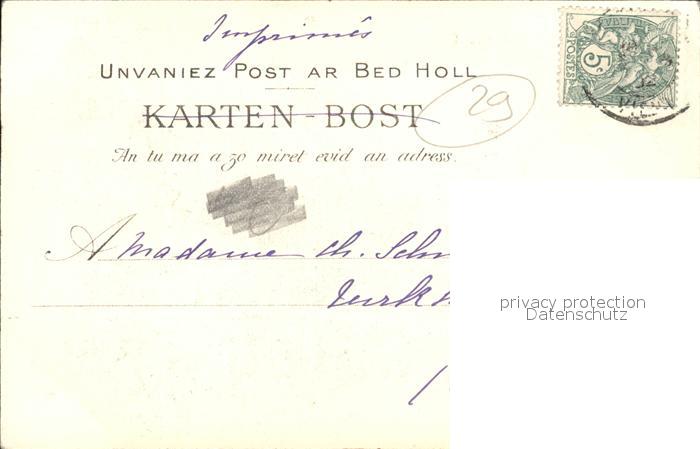 Imprimés
UNVANIEZ POST AR BED HOLL
KARTEN-BOST
29
An tu ma a zo miret evid an adress.
5c
POSTES
A Madame Ch. Sch
Turk
privacy protection
Datenschutz